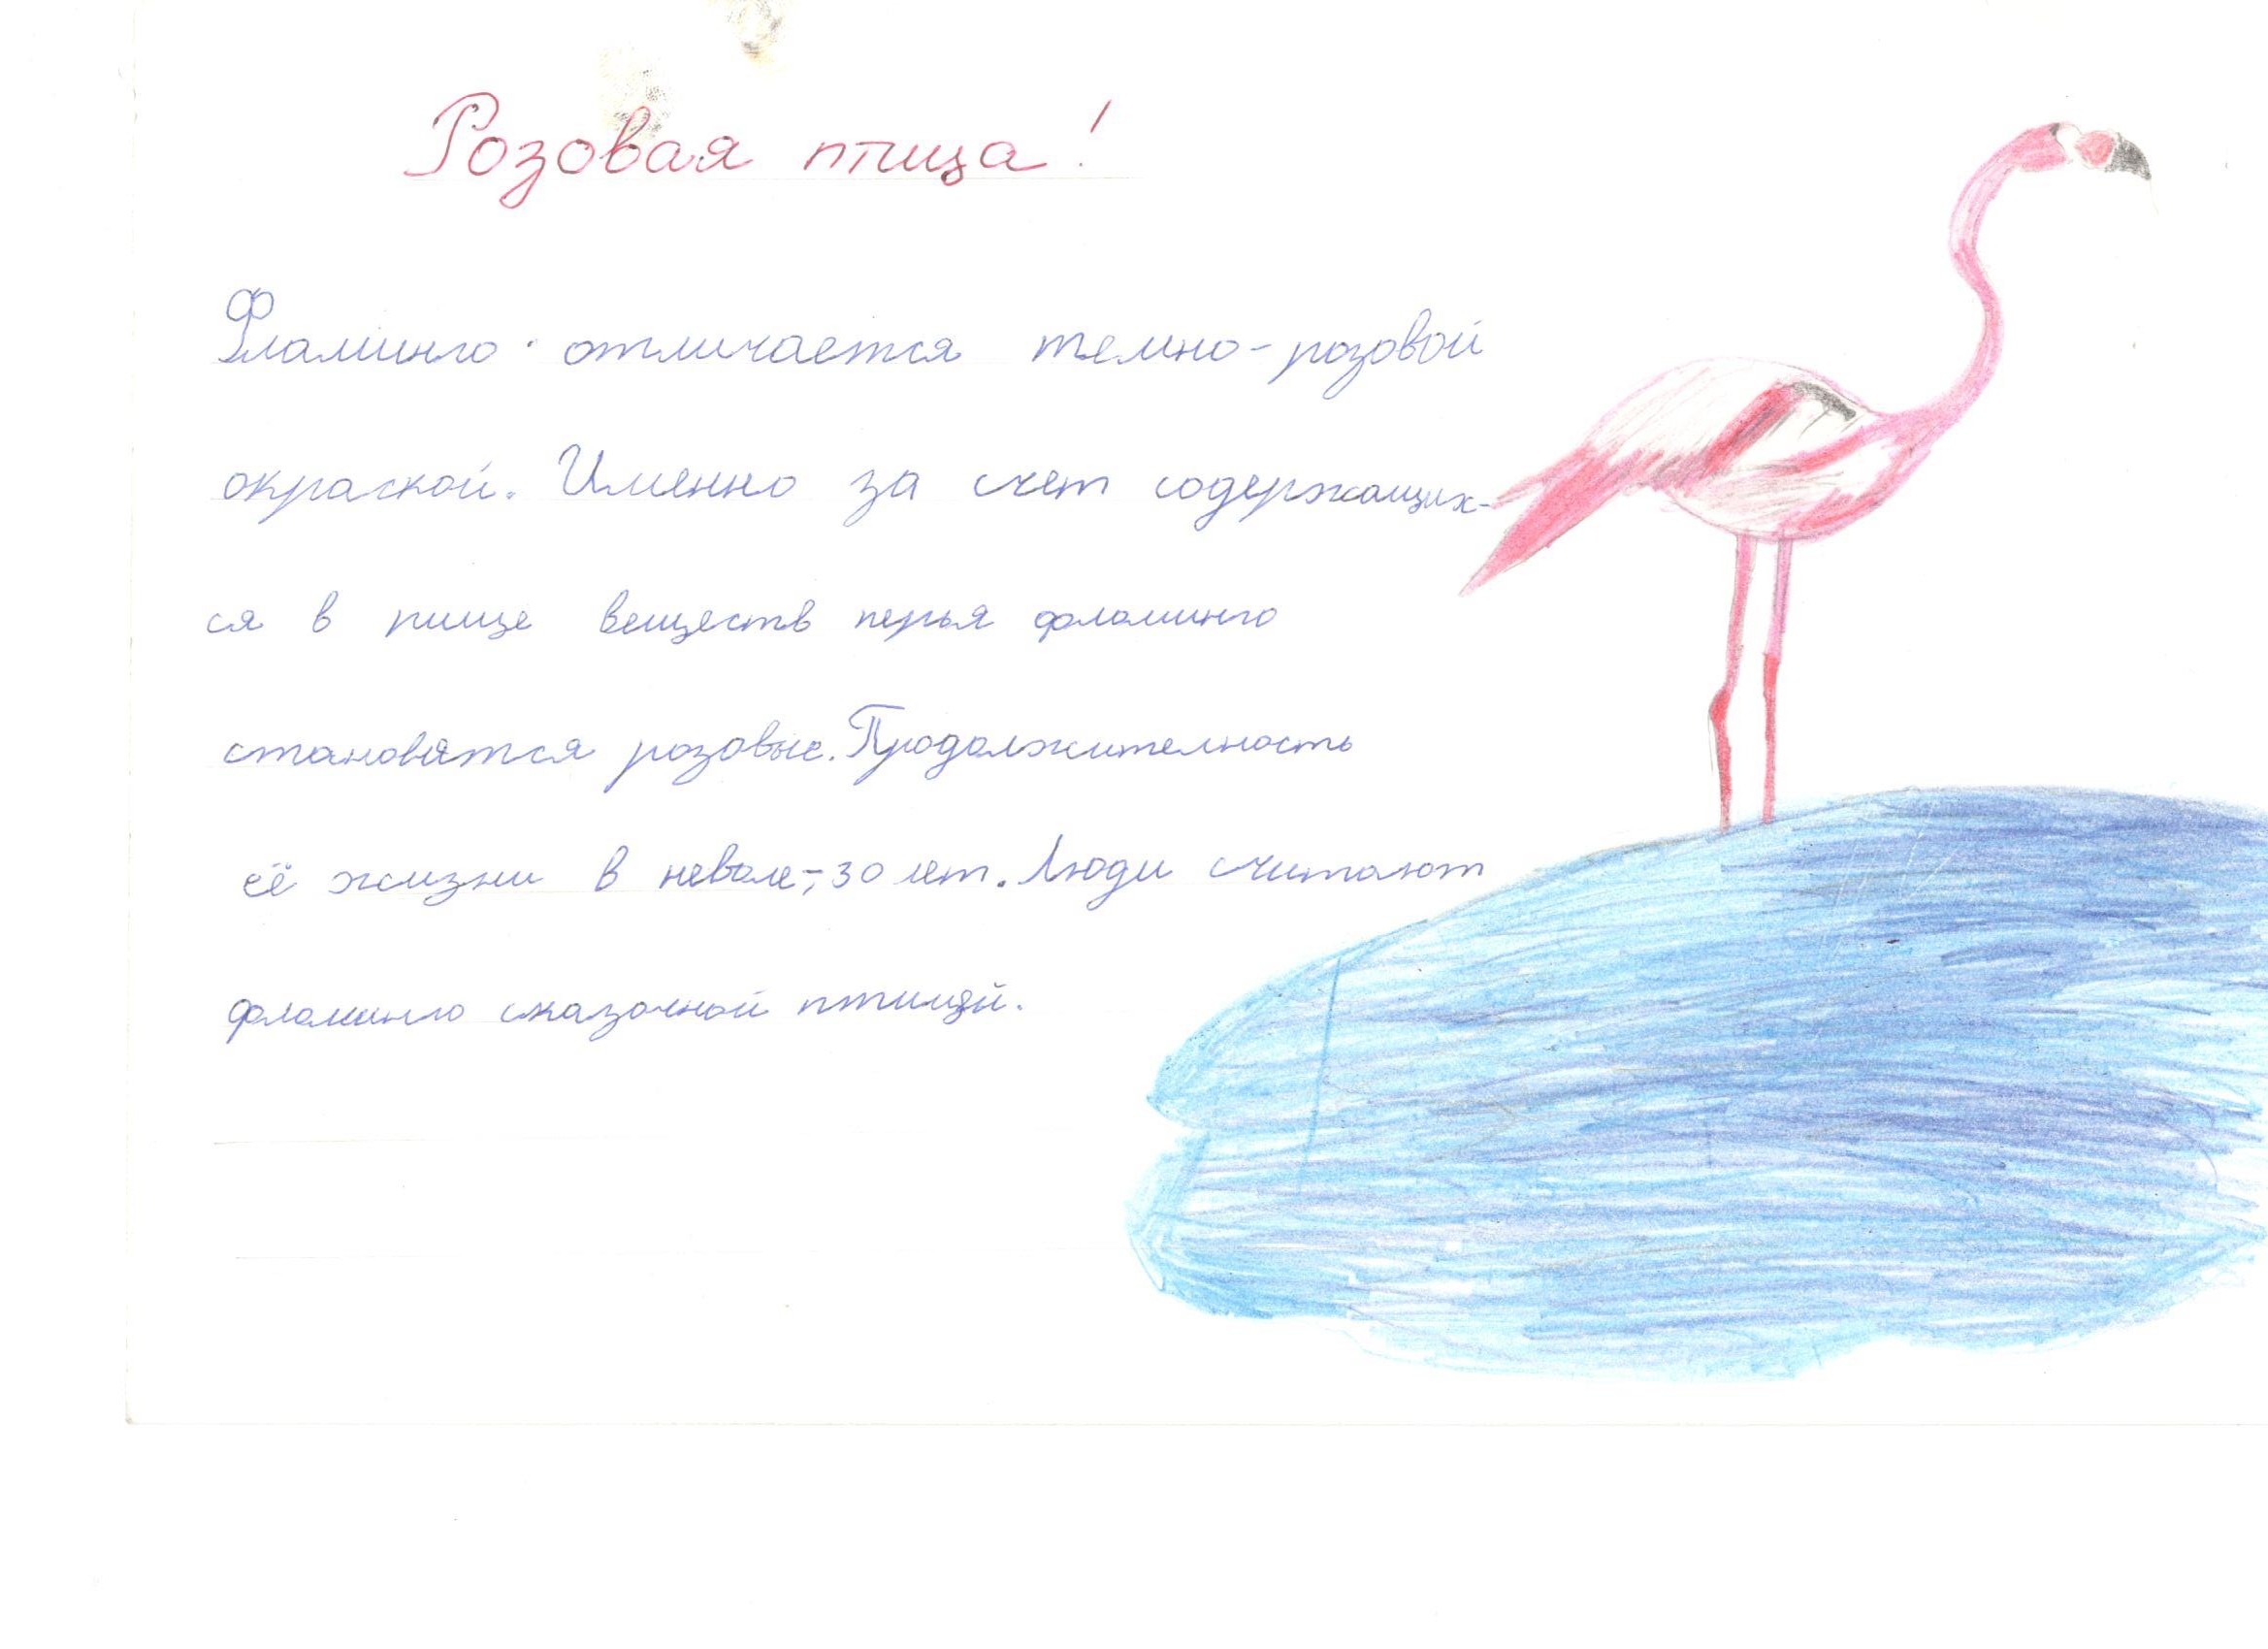 Розовая птица!
Фламинго отличается темно-розовой
окраской. Именно за счет содержащих-
ся в пище веществ перья фламинго
становятся розовые. Продолжителность
её жизни в неволе-30 лет. Люди считают
фламинго сказочной птицей.